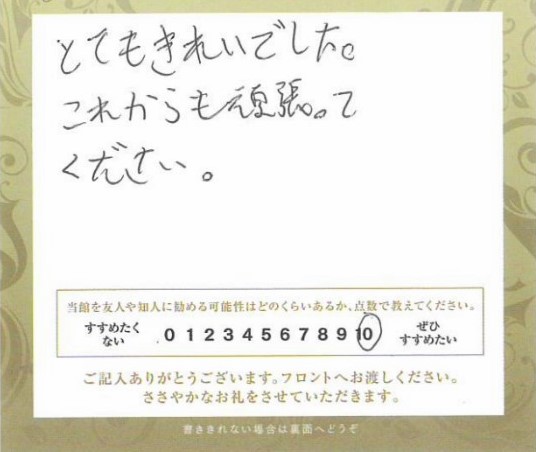 とてもきれいでした。
これからも頑張って
ください。
当館を友人や知人に勧める可能性はどのくらいあるか、点数で教えてください。
すすめたく
ない
0 1 2 3 4 5 6 7 8 9 10
ぜひ
すすめたい
ご記入ありがとうございます。フロントへお渡しください。
ささやかなお礼をさせていただきます。
書ききれない場合は裏面へどうぞ